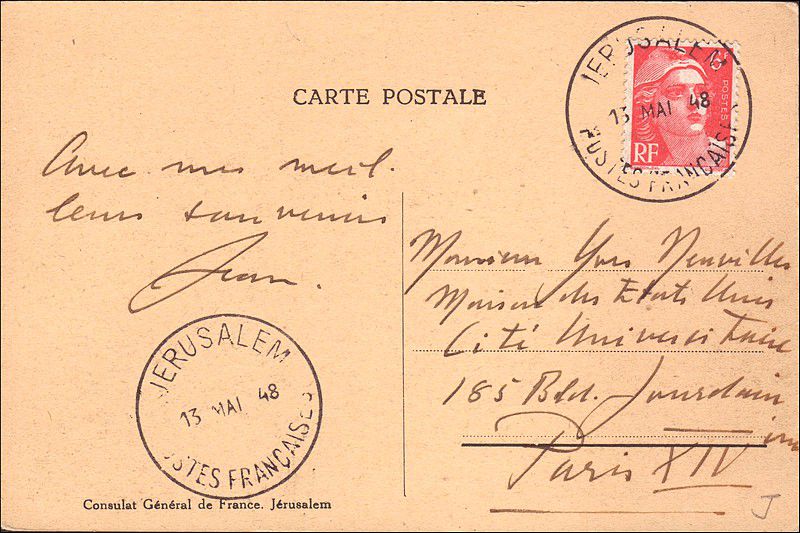 CARTE POSTALE
JERUSALEM
13 MAI 48
POSTES FRANÇAISES
POSTES
RF
Avec mes meil-
leurs souvenirs
Jean.
Monsieur Yves Neuvilles
Maison des Etats Unis
Cité Universitaire
185 Bld. Jourdain
Paris XIV
JERUSALEM
13 MAI 48
POSTES FRANÇAISES
Consulat Général de France. Jérusalem
J